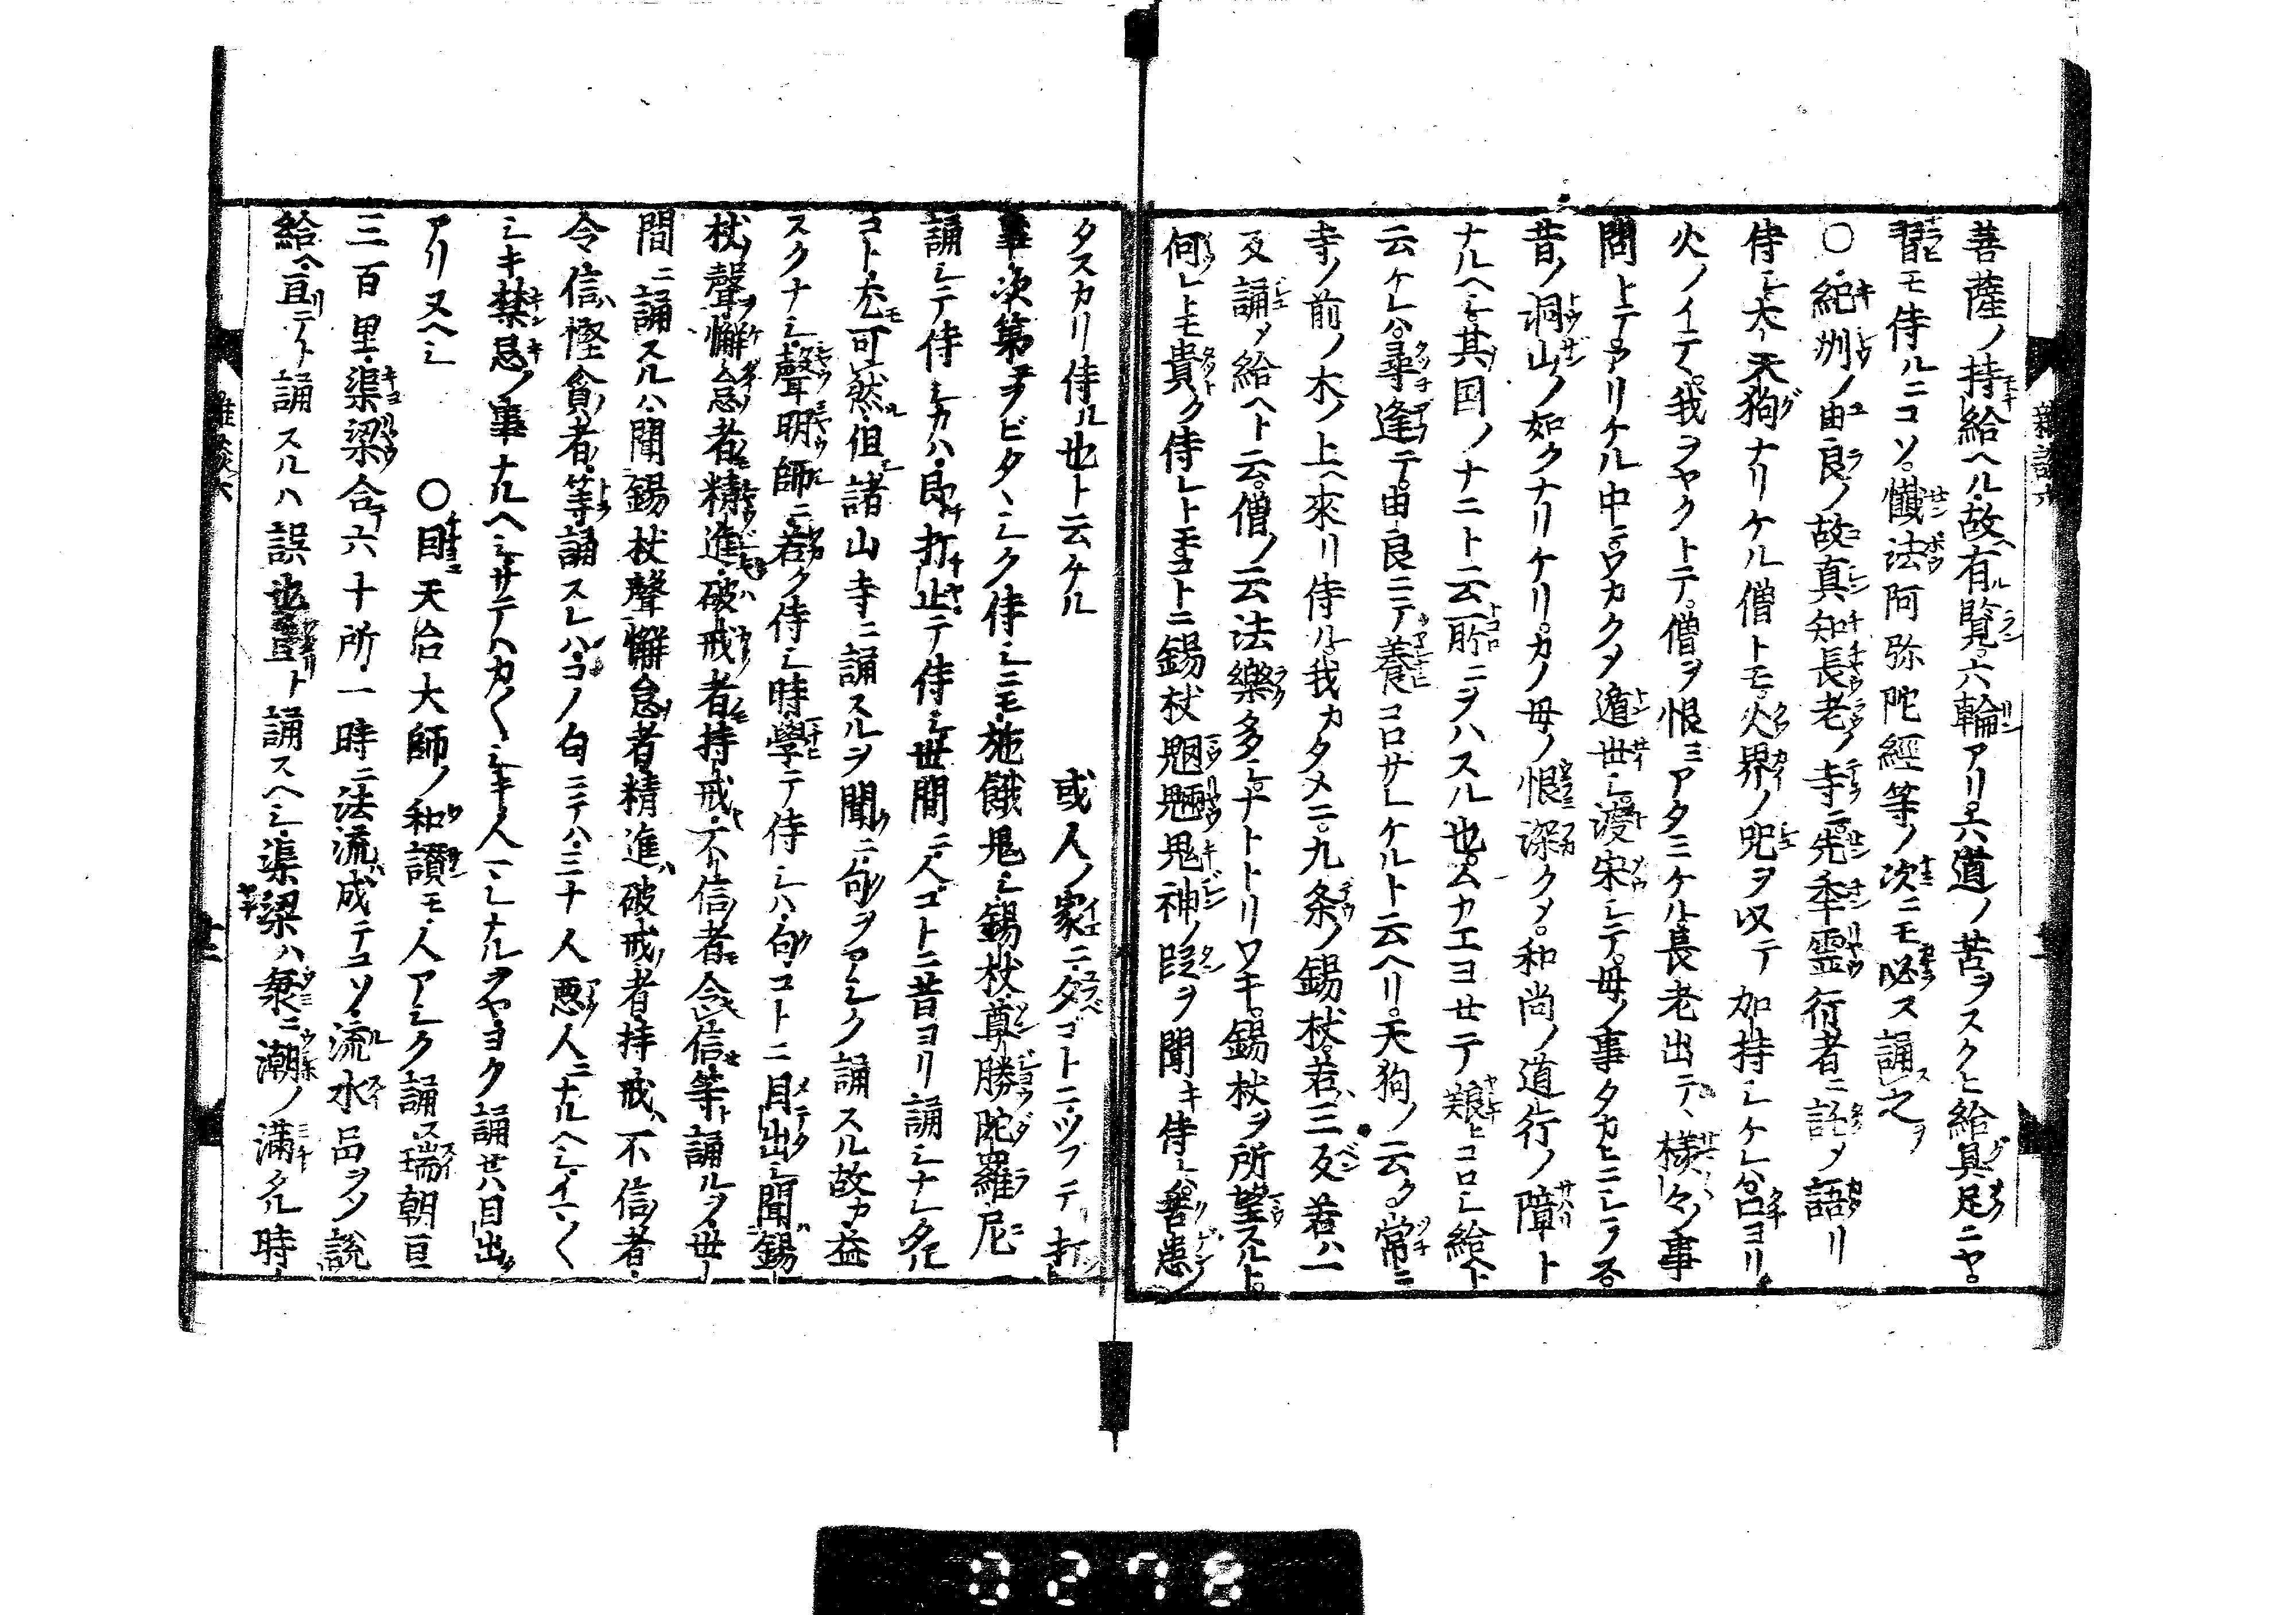 菩薩ノ持給ヘル故有覧六輪アリ。六道ノ苦ヲスクヒ給具足ニヤ。
習モ侍ルニコソ。懺法阿弥陀經等ノ次ニモ必ス誦之ヲ
〇紀州ノ由良ノ故真知長老ノ寺ニ先年霊行者ニ託メ語リ
侍シ大天狗ナリケル僧トモ火界ノ呪ヲ以テ加持シケレハ口ヨリ
火ノイテヽ我ヲヤクトテ。僧ヲ恨ミアタミケル長老出テヽ様々ノ事
問トテアリケル中ニワカクメ遁世シ渡宋シテ母ノ事タカヒニシラス。
昔ノ洞山ノ如クナリケリ。カノ母ノ恨深クメ。和尚ノ道行ノ障ト
ナルヘシ。其国ノナニト云所ニヲハスル也。ムカエヨセテ殺ヒコロシ給ト
云ケレハ。尋逢テ。由良ニテ養コロサレケルト云ヘリ。天狗ノ云ク。常ニ
寺ノ前ノ木ノ上ヘ來リ侍ル。我カタメニ。九条ノ錫杖若ハ三反若ハ一
反誦メ給ヘト云。僧ノ云法樂多シナトトリワキ。錫杖ヲ所望スルト。
何レトモ貴ク侍レトモコトニ錫杖魍魎鬼神ノ段ヲ聞キ侍レハ。苦患ノ
タスカリ侍ル也ト云ケル　或人ノ家ニタコトニツフテ打ト
事次第ヲヲビタヽシク侍シニモ施餓鬼シ錫杖尊勝陀羅尼
誦シテ侍シカハ即打止テ侍シ世間ニ人コトニ昔ヨリ誦シナレタル
コト尤可然但諸山寺ニ誦スルヲ聞ニ句ヲアシク誦スル故カ益
スクナシ聲明師ニ若ク侍シ時學テ侍シハ句コトニ目出シ聞錫
杖聲懈怠者精進破戒者持戒不信者令信等誦ルヲ世
間ニ誦スルハ聞錫杖聲懈怠者精進破戒者持戒不信者
令信慳貪者等誦スレハコノ句ニテハ三十人悪人ニナルヘシイマ〱
シキ禁忌ノ事ナルヘシサテハカ〱シキ人マレナルヲヤヨク誦世ハ目出
アリヌヘシ　〇目天台大師ノ和讃モ人アシク誦ス瑞朝亘
三百里渠梁合六十所一時ニ法流成テコソ流水品ヲソ説
給ヘ直テト誦スルハ誤也亘ト誦スヘシ渠梁ハ衆ニ潮ノ満タル時